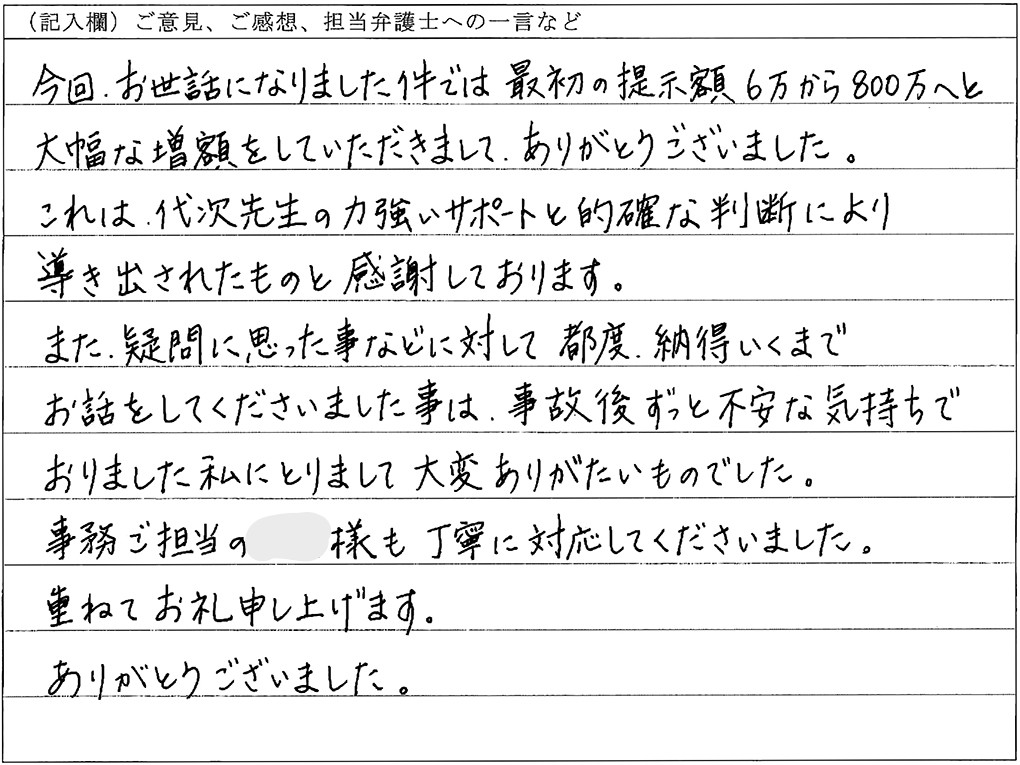 （記入欄）ご意見、ご感想、担当弁護士への一言など
今回、お世話になりました件では 最初の提示額 6万から800万へと
大幅な増額をしていただきまして、ありがとうございました。
これは、代次先生の力強いサポートと的確な判断により
導き出されたものと感謝しております。
また、疑問に思った事などに対して 都度、納得いくまで
お話をしてくださいました事は、事故後ずっと不安な気持ちで
おりました私にとりまして 大変ありがたいものでした。
事務ご担当の 様も 丁寧に対応してくださいました。
重ねてお礼申し上げます。
ありがとうございました。